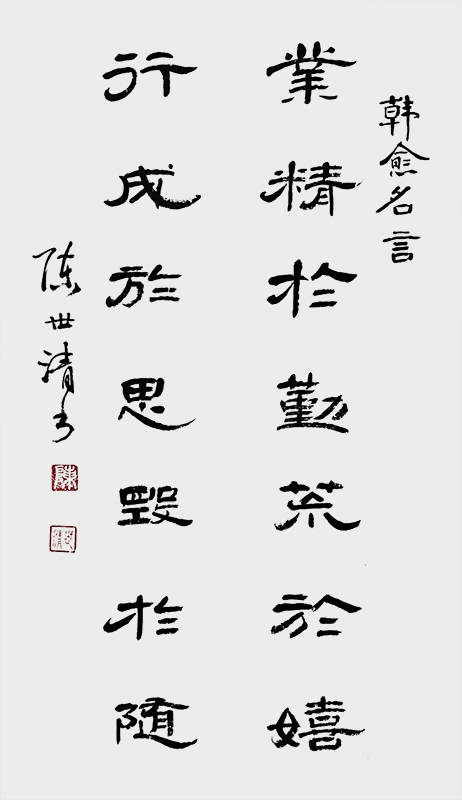 韩愈名言
業精於勤荒於嬉
行成於思毀於随
陈世清书
陳
世清